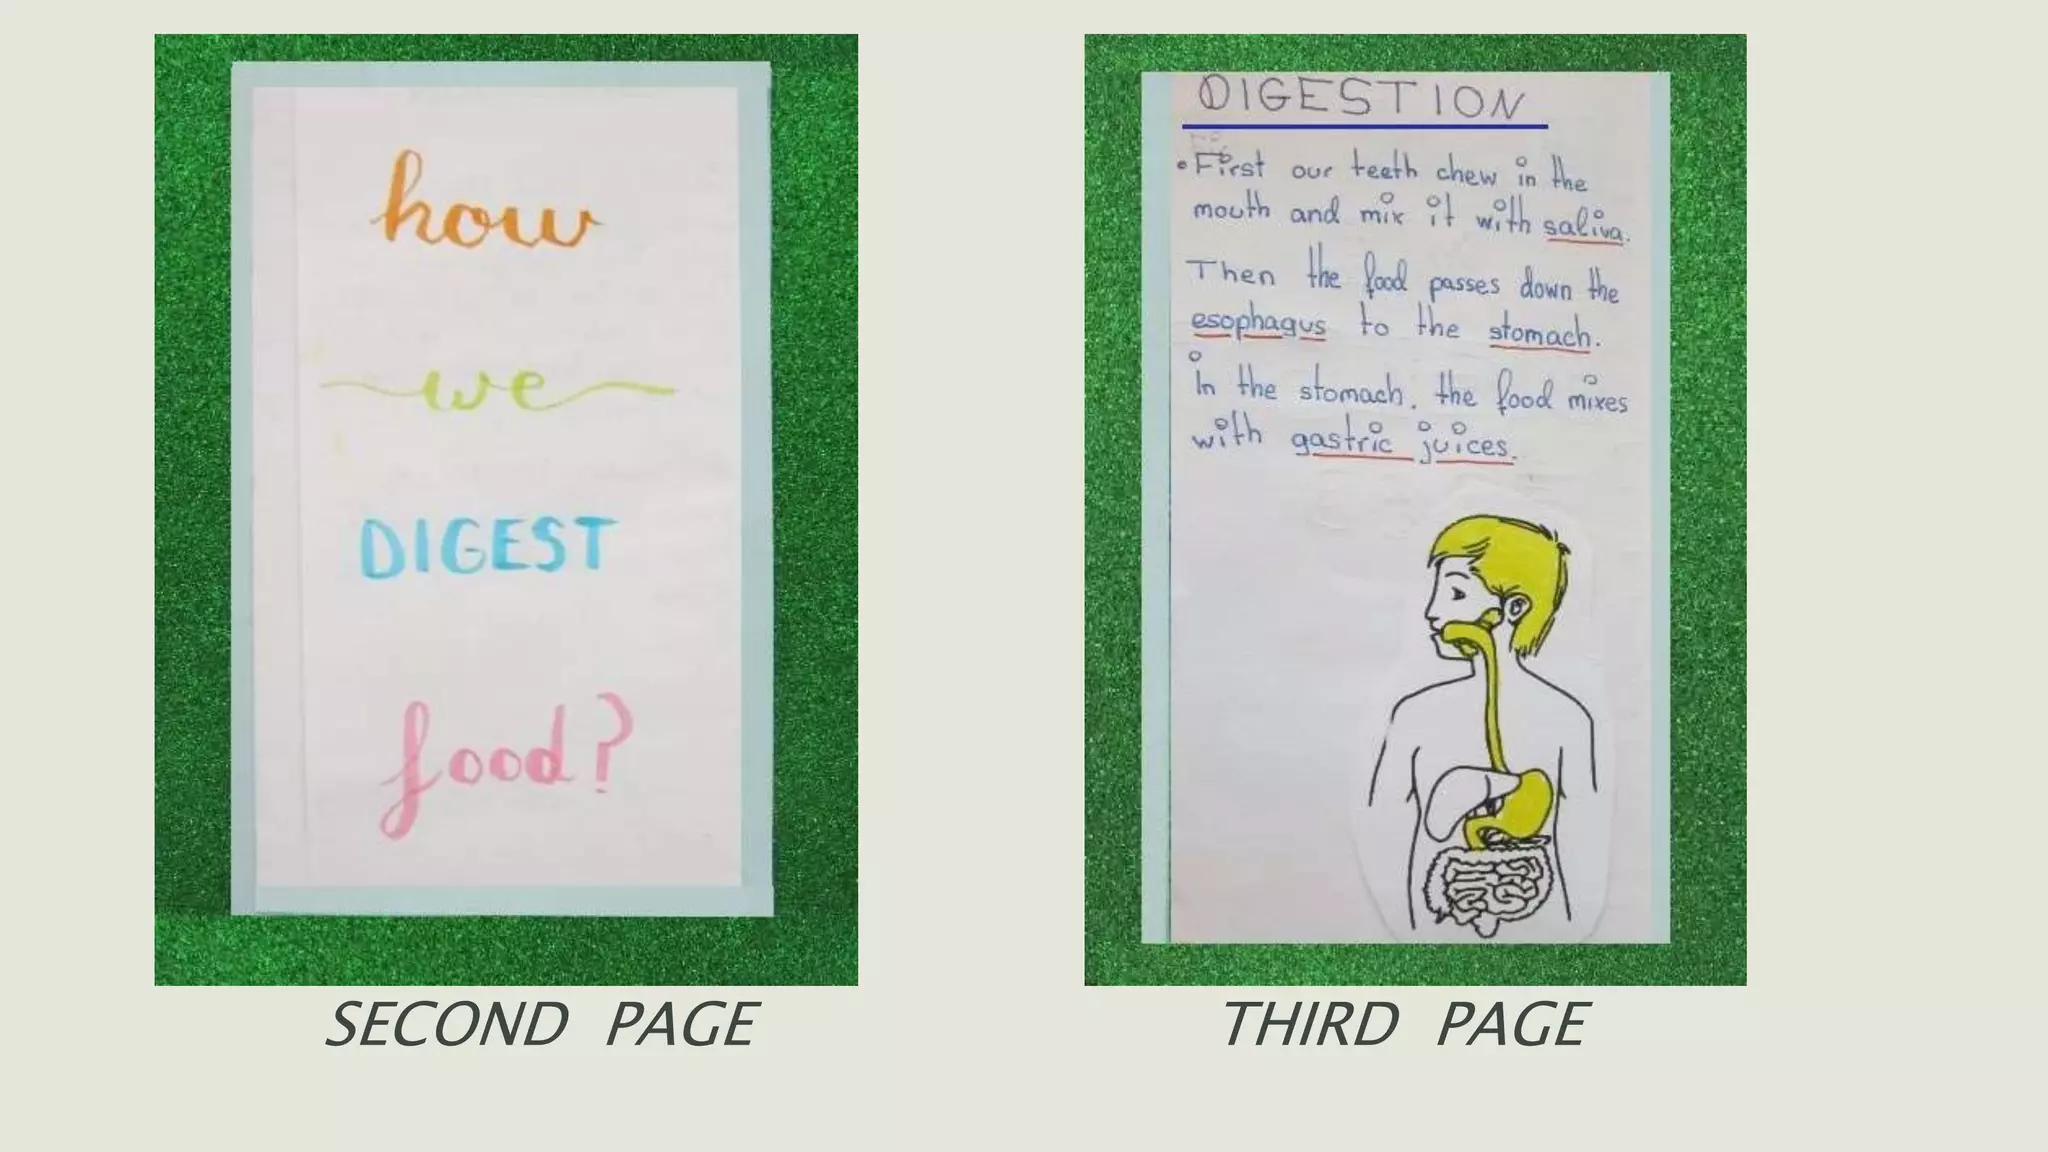 how
we
DIGEST
food?
SECOND PAGE
DIGESTION
• First our teeth chew in the
mouth and mix it with saliva.
Then the food passes down the
esophagus to the stomach.
In the stomach. the food mixes
with gastric juices.
THIRD PAGE